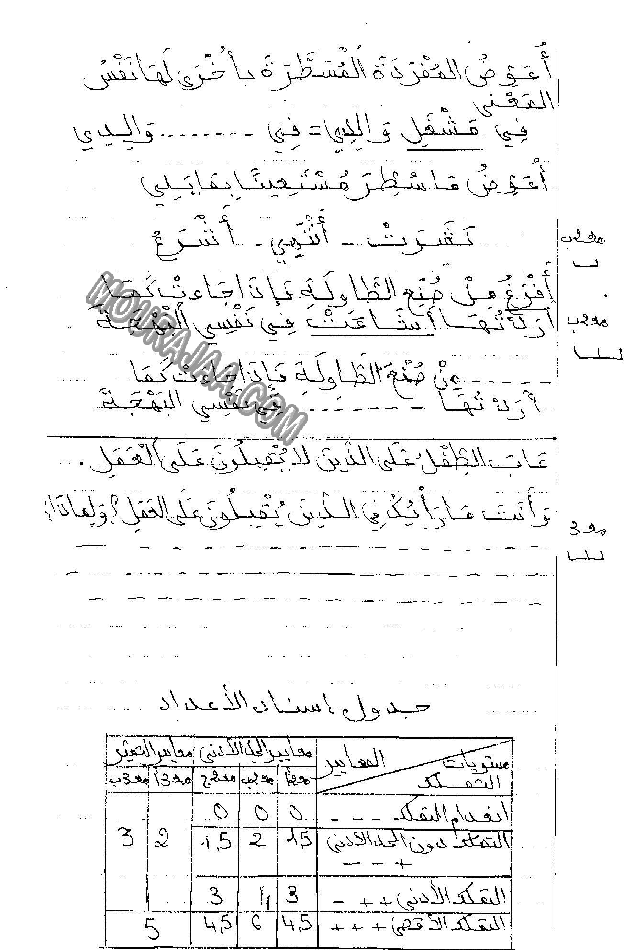 أُعَوِّضُ المُفْرَدَةَ الْمُسَطَّرَةَ بِأُخْرَى لَهَا نَفْسُ
المَعْنَى
فِي مَشْغَلِ وَالِدِي = فِي ........ وَالِدِي
أُعَوِّضُ مَا سُطِّرَ مُسْتَعِينًا بِمَا يَلِي
نَشَرَتْ - أَنْتَهِي - أَشْرَعُ
أَفْرَغُ مِنْ صُنْعِ الطَّاوِلَةِ فَإِذَا جَاءَتْ كَمَا
أَرَدْتُهَا أَشَاعَتْ فِي نَفْسِي الْبَهْجَةَ
...... مِنْ صُنْعِ الطَّاوِلَةِ فَإِذَا جَاءَتْ كَمَا
أَرَدْتُهَا ........ فِي نَفْسِي البَهْجَةَ
عَابَ الطِّفْلُ عَلَى الَّذِينَ لَا يُقْبِلُونَ عَلَى الْعَمَلِ .
وَأَنْتَ مَا رَأْيُكَ فِي الَّذِينَ يُقْبِلُونَ عَلَى العَمَلِ؟ وَلِمَاذَا؟
مع2ب
مع2ب
مع3
MOURAJAA.COM
جدول إسناد الأعداد
مستويات التملك المعايير معايير الحد الأدنى معايير التميز
مع1 مع2ب مع2ج مع3أ مع3ب
انعدام التملك - - - 0 0 0
التملك دون الحد الأدنى + - - 1,5 2 1,5 2 3
التملك الأدنى + + - 3 4 3
التملك الأقصى + + + 4,5 6 4,5 5